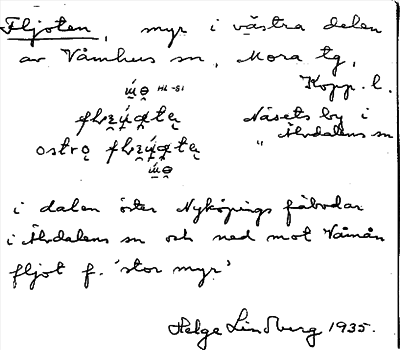 Fljoten, myr i västra delen
av Våmhus sn, Mora tg,
Kopp. l.
HL-SI
Näsets by i
ostrǫ
" Älvdalens sn
i dalen öster Nyköpings fäbodar
i Älvdalens sn och ned mot Våmån
fljot f. 'stor myr'
Helge Lindberg 1935.